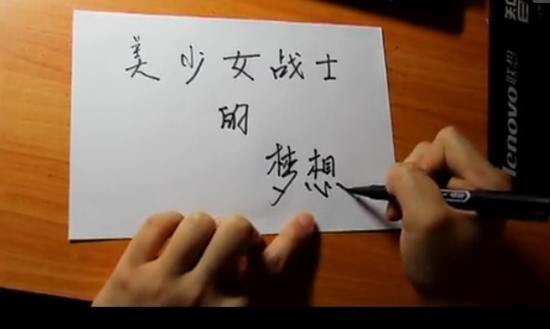 美少女战士
的
梦想
lenovo联想